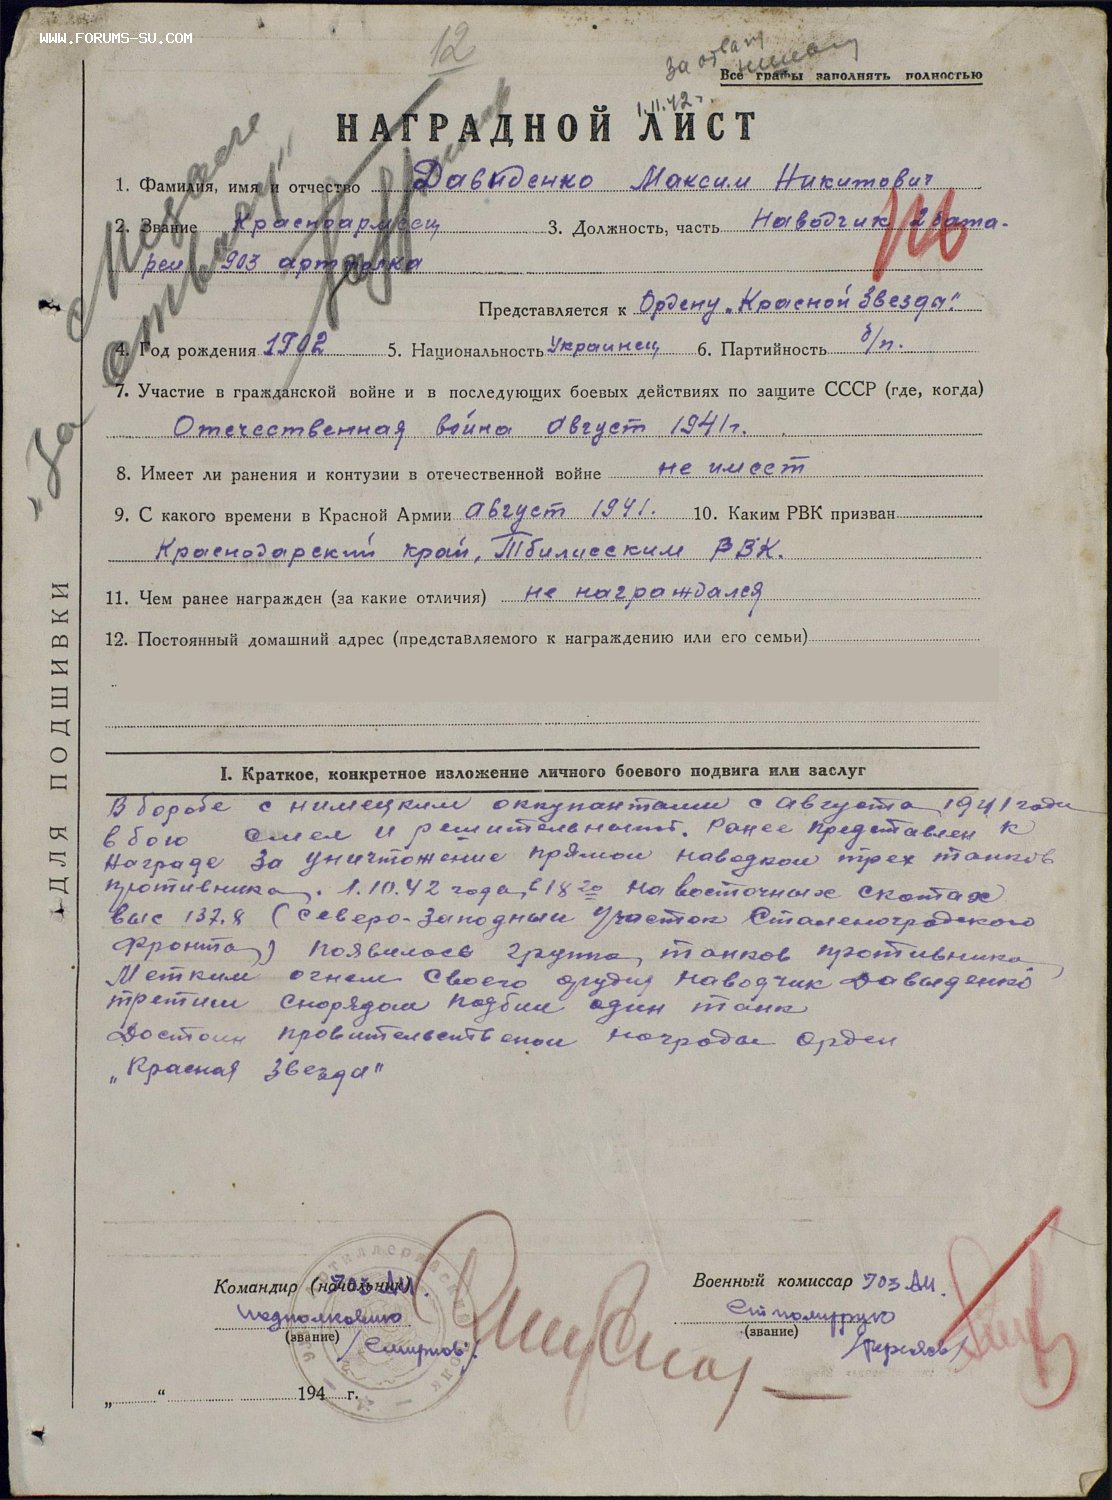 WWW.FORUMS-SU.COM
12
За отвагу
Все графы заполнять полностью
1.11.42 г.
НАГРАДНОЙ ЛИСТ
Медаль
"За отвагу"
1. Фамилия, имя и отчество Давиденко Максим Никитович
2. Звание Красноармеец 3. Должность, часть Наводчик 2 бата-
реи 903 артполка
Представляется к Ордену „Красной Звезда".
4. Год рождения 1902 5. Национальность Украинец 6. Партийность б/п.
7. Участие в гражданской войне и в последующих боевых действиях по защите СССР (где, когда)
Отечественная война август 1941 г.
8. Имеет ли ранения и контузии в отечественной войне не имеет
9. С какого времени в Красной Армии август 1941. 10. Каким РВК призван
Краснодарский край, Тбилисским РВК.
11. Чем ранее награжден (за какие отличия) не награждался
12. Постоянный домашний адрес (представляемого к награждению или его семьи)
ДЛЯ ПОДШИВКИ
I. Краткое, конкретное изложение личного боевого подвига или заслуг
В борьбе с нимецким оккупантами с августа 1941 года
в бою смел и решительност. Ранее представлен к
награде за уничтожение прямой наводкой трех танков
противника. 1.10.42 года в 18 20 на восточных скатах
выс 137.8 (Северо-Западный участок Сталеноградского
фронта) появилось группа танков противника
Метким огнем своего орудия наводчик Давыденко
третим снарядом подбил один танк
Достоин правительственой награды орден
„Красная Звезда"
Командир (начальник) 903 АП.
подполковник
(звание)
/Смирнов/.
„ " 194 г.
Военный комиссар 903 АП.
ст политрук
(звание)